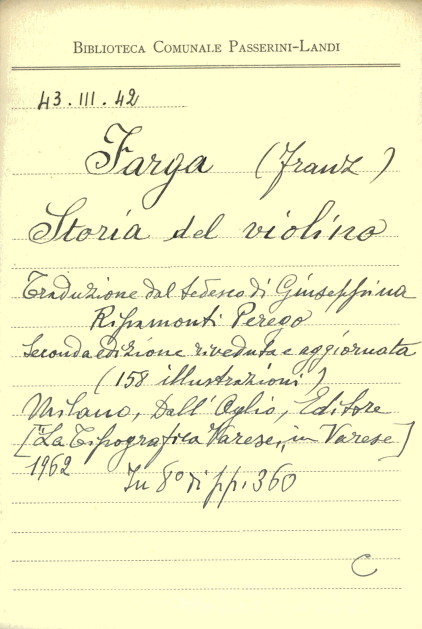 BIBLIOTECA COMUNALE PASSERINI-LANDI
43.III.42
Farga (Franz)
Storia del violino
Traduzione dal tedesco di Giuseppina
Ripamonti Perego
Seconda edizione riveduta e aggiornata
(158 illustrazioni)
Milano, Dall'Oglio, Editore
["La Tipografica Varese„ in Varese]
1962 In 8° di pp. 360
C